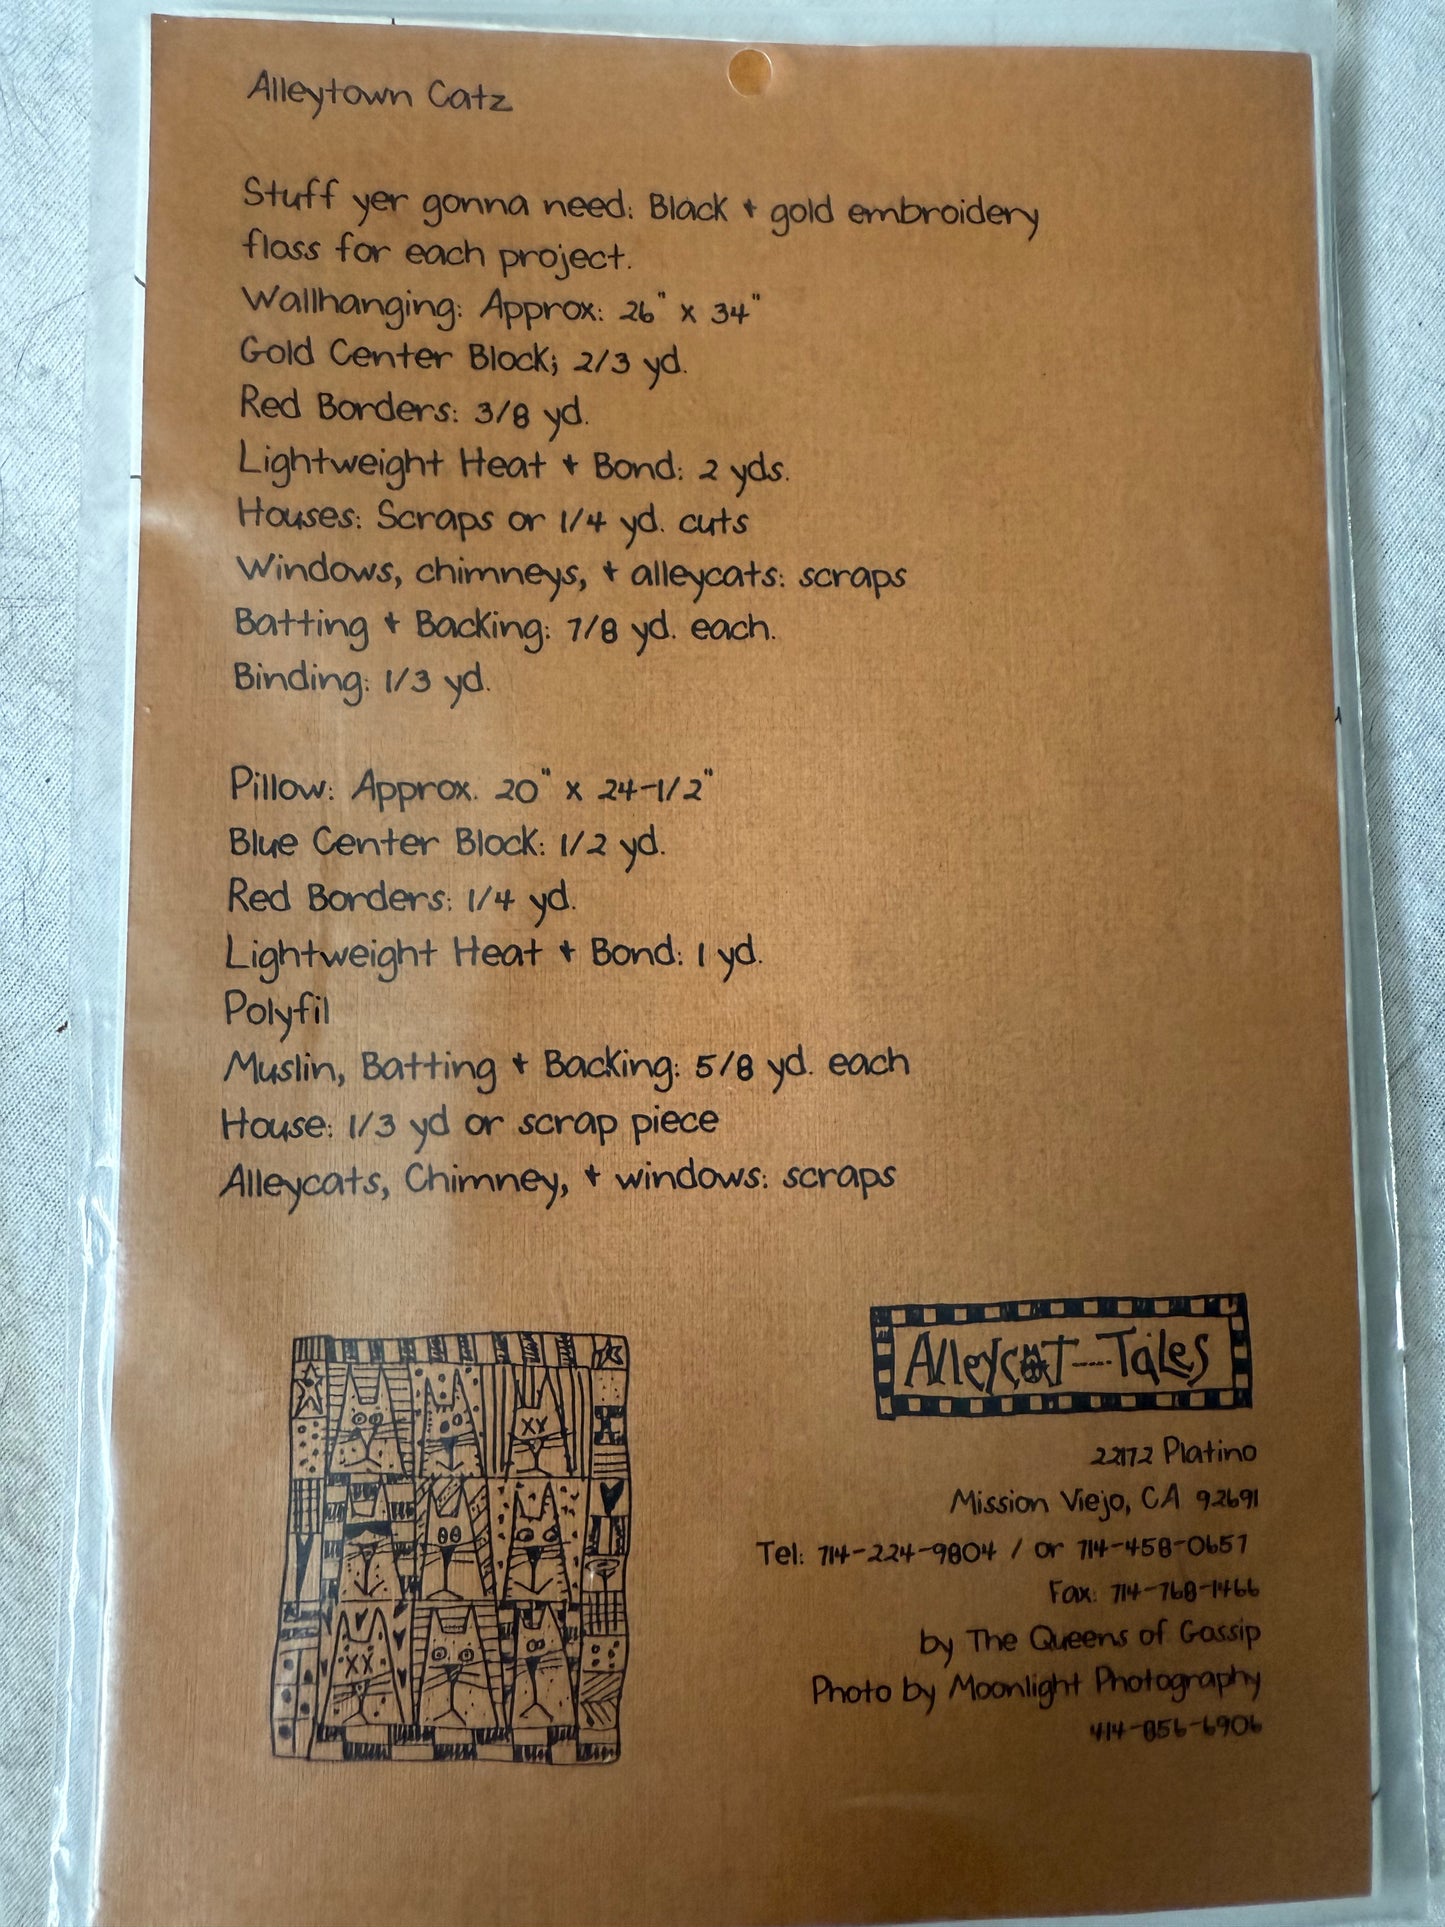 Alleytown Catz
Stuff yer gonna need: Black + gold embroidery
floss for each project.
Wallhanging: Approx: 26" x 34"
Gold Center Block; 2/3 yd.
Red Borders: 3/8 yd.
Lightweight Heat + Bond: 2 yds.
Houses: Scraps or 1/4 yd. cuts
Windows, chimneys, + alleycats: scraps
Batting + Backing: 7/8 yd. each.
Binding: 1/3 yd.
Pillow: Approx. 20" x 24-1/2"
Blue Center Block: 1/2 yd.
Red Borders: 1/4 yd.
Lightweight Heat + Bond: 1 yd.
Polyfil
Muslin, Batting + Backing: 5/8 yd. each
House: 1/3 yd or scrap piece
Alleycats, Chimney, + windows: scraps
Alleycat----Tales
22172 Platino
Mission Viejo, CA 92691
Tel: 714-224-9804 / or 714-458-0651
Fax: 714-768-1466
by The Queens of Gossip
Photo by Moonlight Photography
414-856-6906